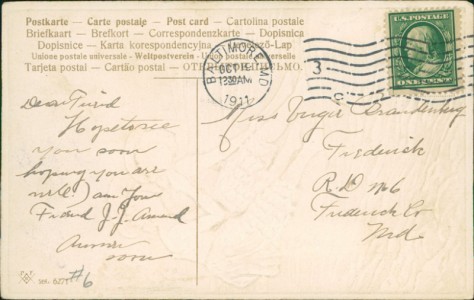 Postkarte — Carte postale — Post card — Cartolina postale
Briefkaart — Brefkort — Correspondenzkarte — Dopisnica
Dopisnice — Karta korespondencyjna — Levelező-Lap
Union postale universelle - Weltpostverein - Unión postal universal
Tarjeta postal — Cartão postal — ОТКРЫТОЕ ПИСЬМО.
BALTIMORE, MD
OCT
12 30 AM
1911
3
U.S. POSTAGE
ONE CENT
Dear Friend
Hope to see
you soon
hoping you are
well I am your
Friend J. J.
Answer
soon
Miss Brandenburg
Frederick
R.D. No 6
Frederick Co
Md.
#6